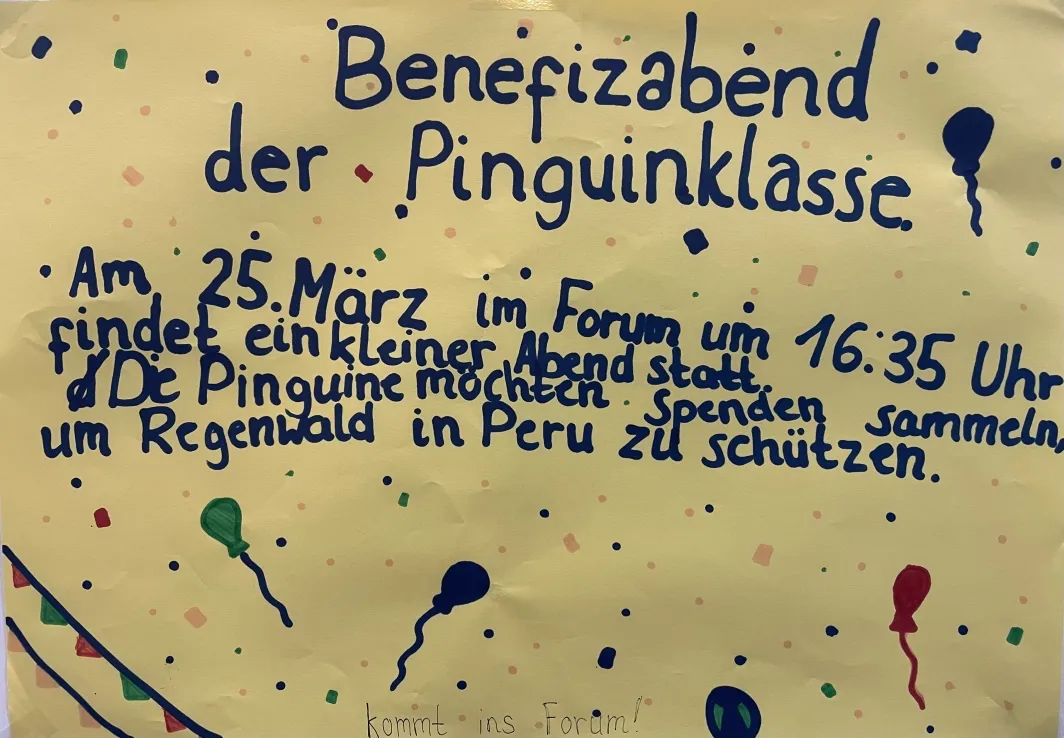 Benefizabend
der Pinguinklasse.
Am 25. März im Forum um 16:35 Uhr
findet ein kleiner Abend statt.
Die Pinguine möchten Spenden sammeln,
um Regenwald in Peru zu schützen.
kommt ins Forum!